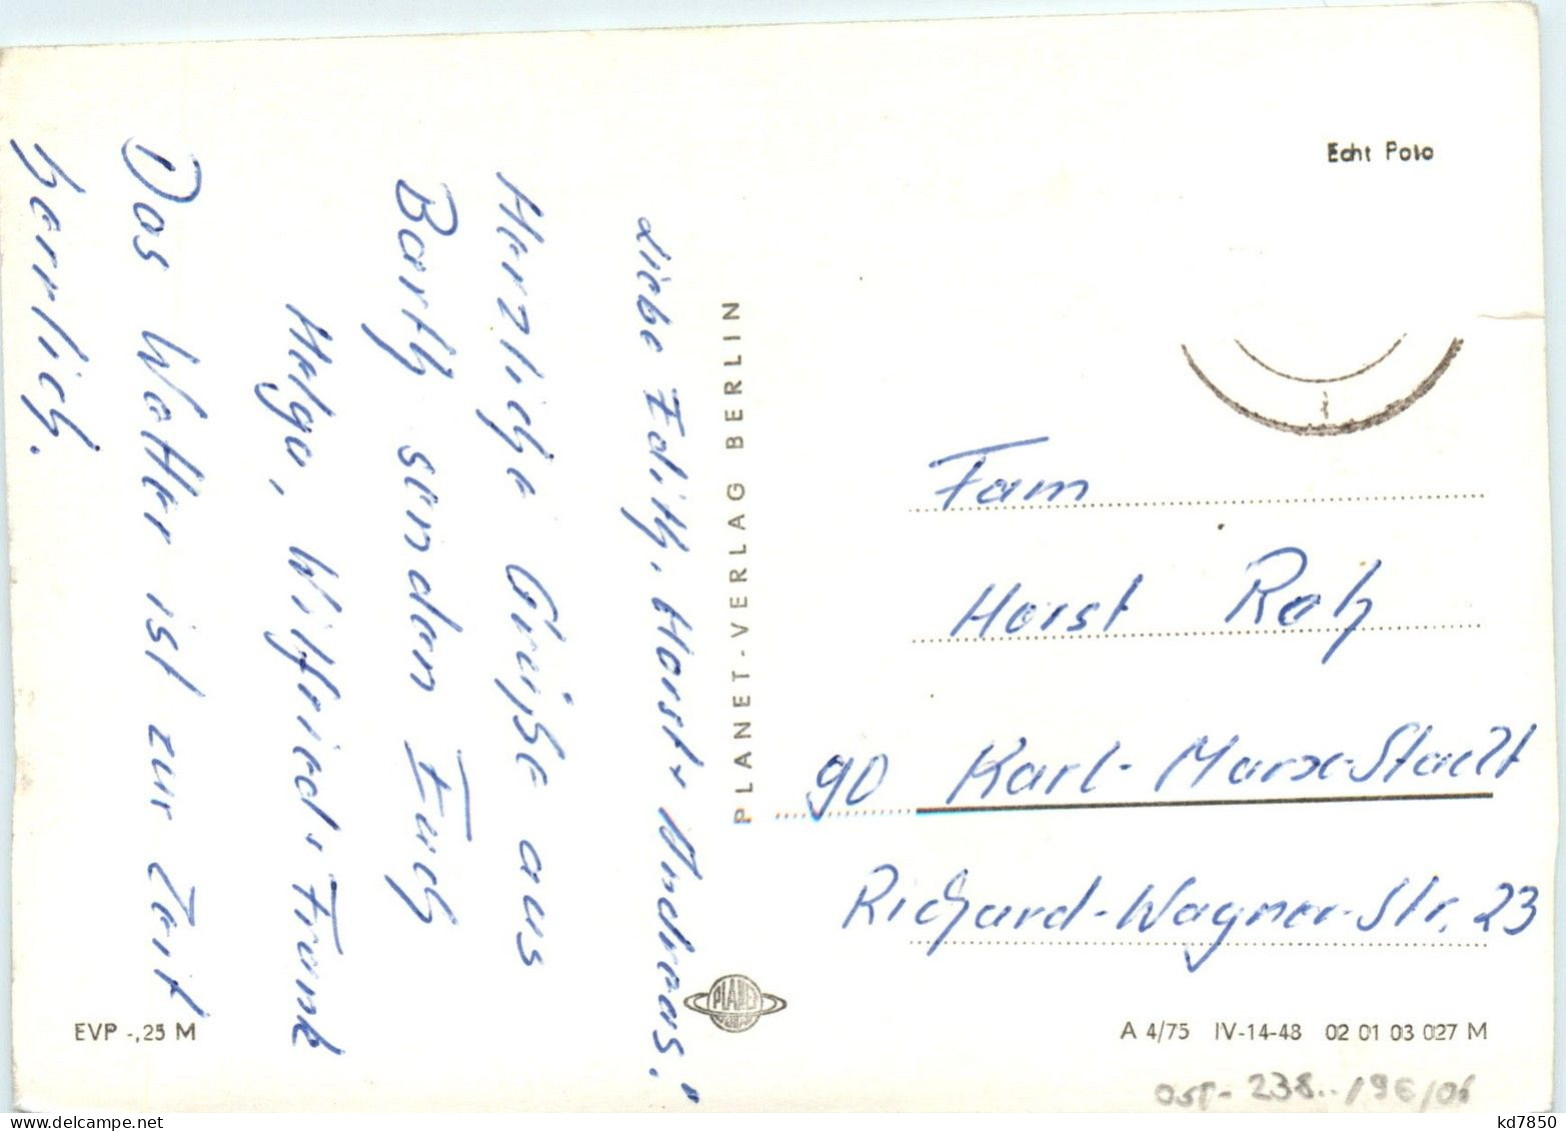 Liebe Edith, Horst + Andreas!
Herzliche Grüße aus
Barth senden Euch
Helga, Wilfried + Frank
Das Wetter ist zur Zeit
herrlich.
EVP -,25 M
PLANET-VERLAG BERLIN
PLANET
Echt Foto
Fam
Horst
90 Karl-Marx-Stadt
Richard-Wagner-Str. 23
A 4/75 IV-14-48 02 01 03 027 M
kd7850